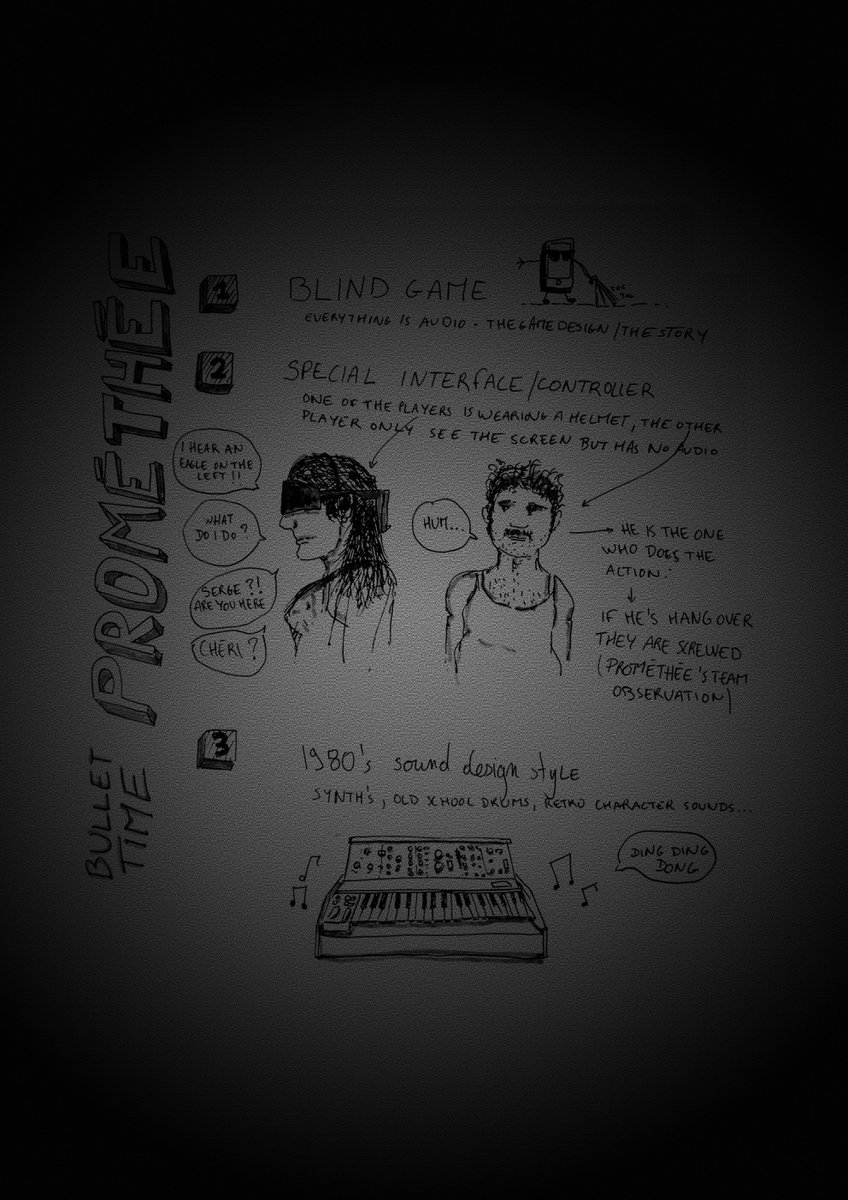 PROMÉTHÉE
BULLET
TIME
1
BLIND GAME
TOC
TOC
EVERYTHING IS AUDIO - THE GAME DESIGN / THE STORY
2
SPECIAL INTERFACE/CONTROLLER
ONE OF THE PLAYERS IS WEARING A HELMET, THE OTHER
PLAYER ONLY SEE THE SCREEN BUT HAS NO AUDIO
I HEAR AN
EAGLE ON THE
LEFT !!
WHAT
DO I DO ?
SERGE ?!
ARE YOU HERE
CHÉRI ?
HUM...
HE IS THE ONE
WHO DOES THE
ACTION.
IF HE'S HANG OVER
THEY ARE SCREWED
(PROMÉTHÉE'S TEAM
OBSERVATION)
3
1980's sound design style
SYNTH'S, OLD SCHOOL DRUMS, RETRO CHARACTER SOUNDS...
DING DING
DONG